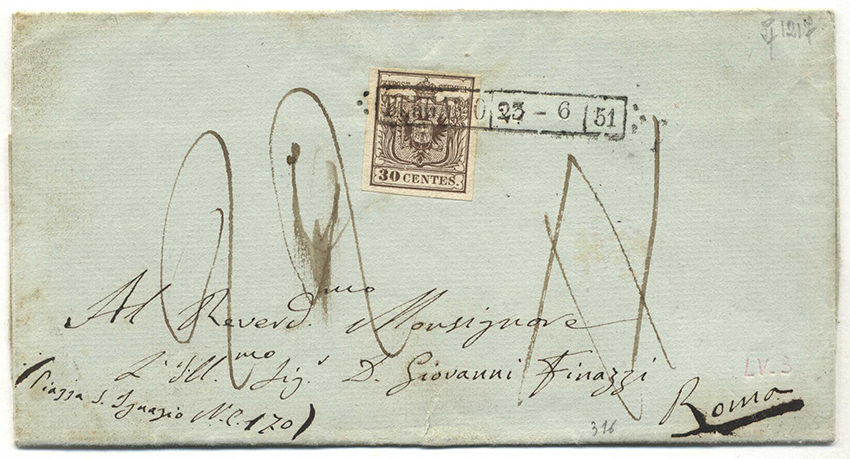 1217
BERGAMO 23 - 6 51
30 CENTES.
Al Reverd.mo Monsignore
L'Ill.mo Sig.r D. Giovanni Finazzi
LV.3
(Piazza S. Ignazio N.C. 170)
Roma
316